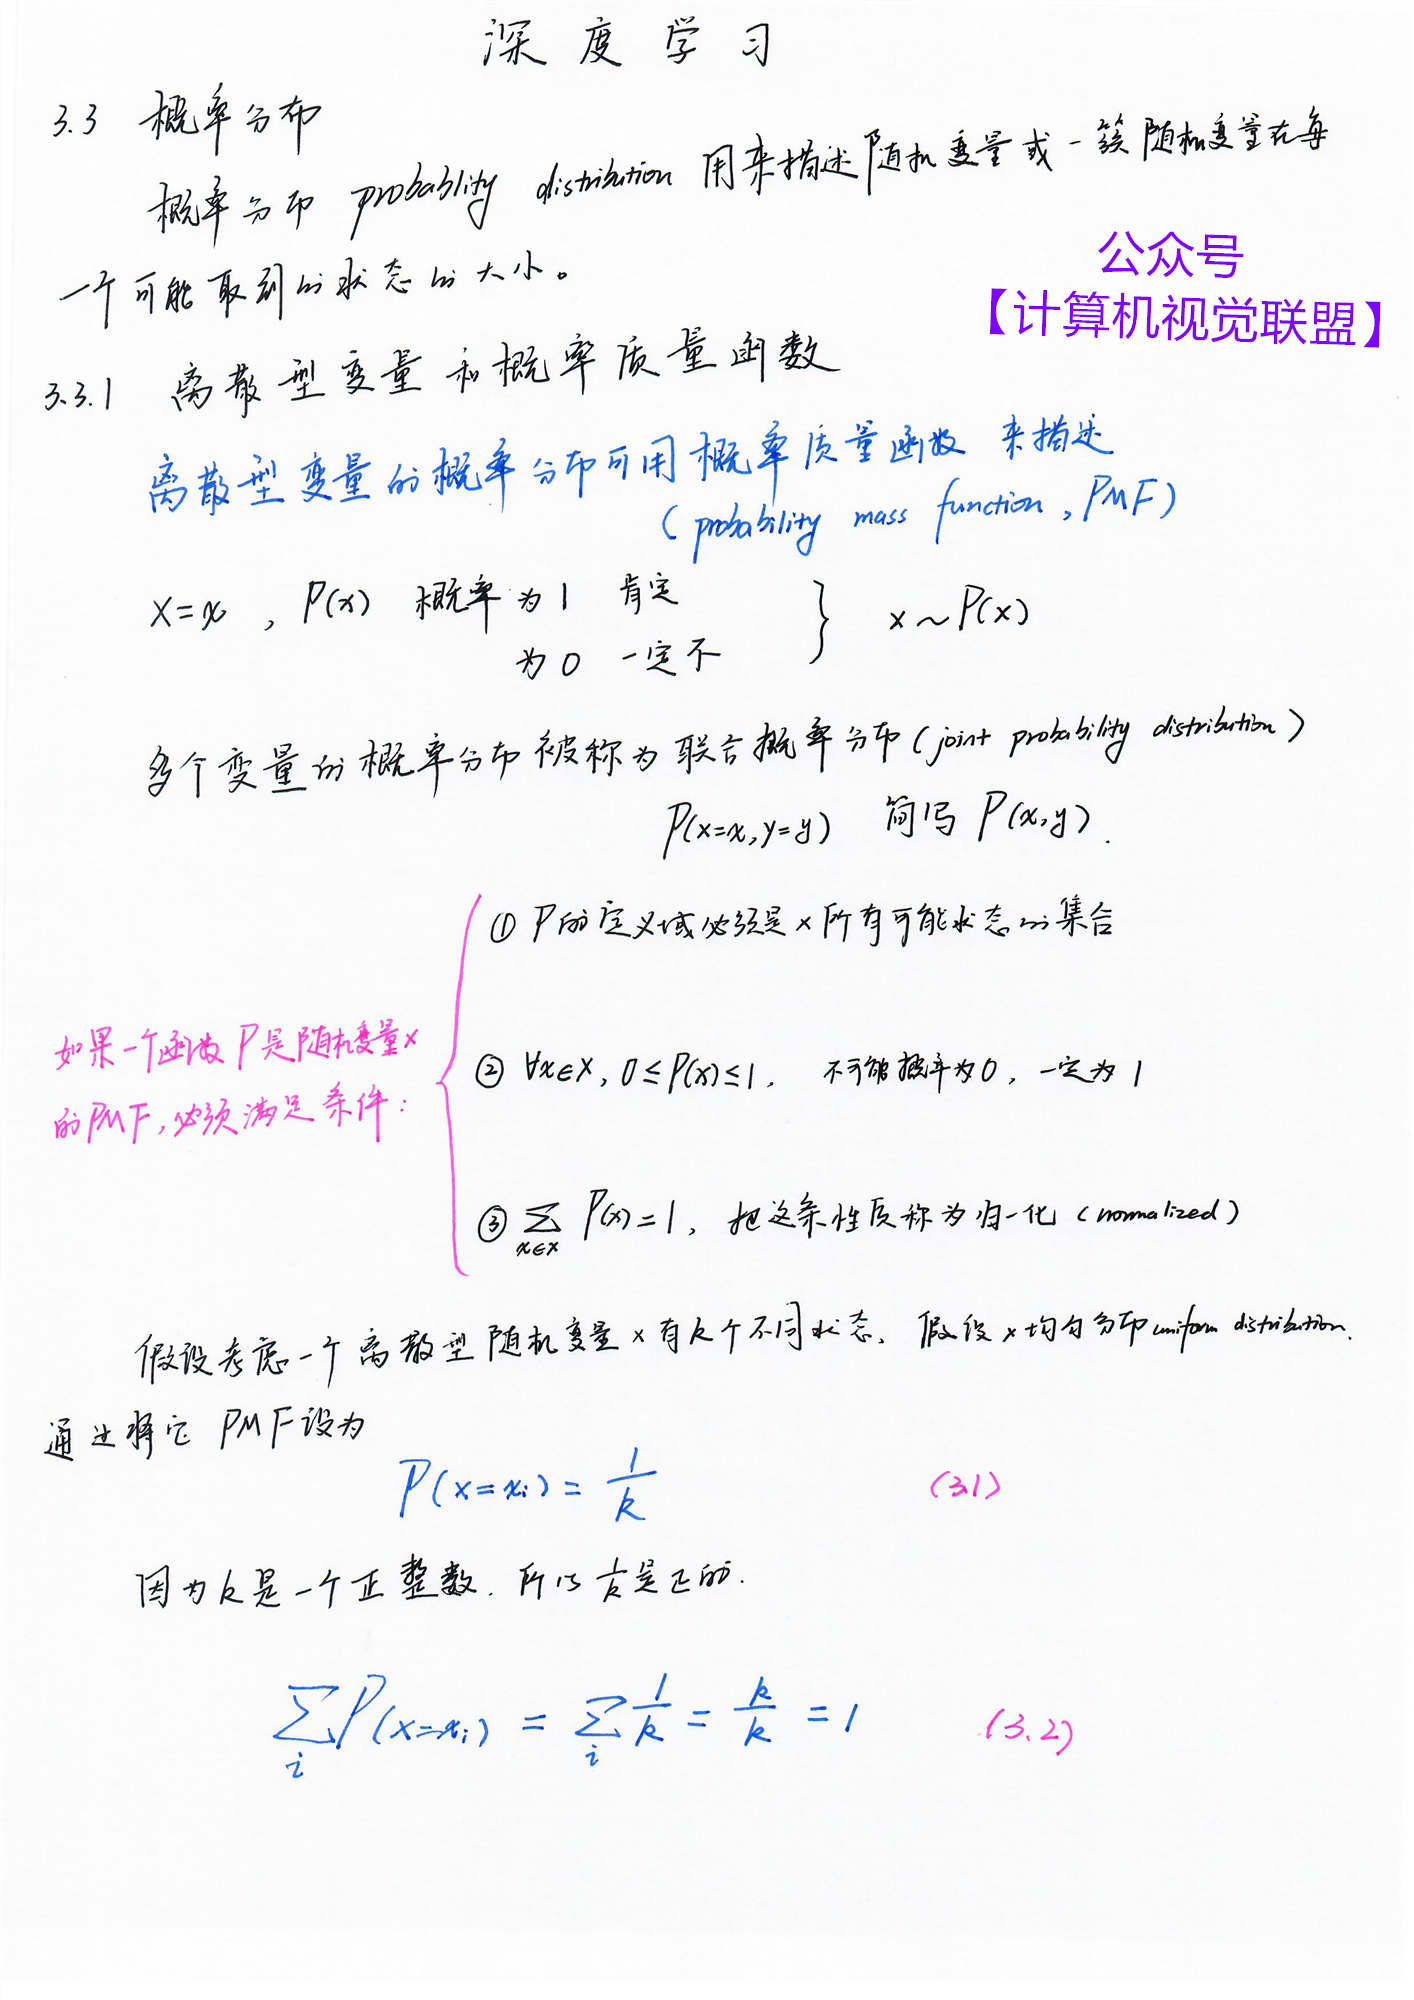 深度学习
3.3 概率分布
概率分布 probablity distribution 用来描述随机变量或一簇随机变量在每
一个可能取到的状态的大小。
公众号
【计算机视觉联盟】
3.3.1 离散型变量和概率质量函数
离散型变量的概率分布可用概率质量函数 来描述
(probability mass function, PMF)
x=x , P(x) 概率为1 肯定
为0 一定不 } x~P(x)
多个变量的概率分布被称为联合概率分布(joint probability distribution)
P(x=x,y=y) 简写 P(x,y).
① P的定义域必须是x所有可能状态的集合
如果一个函数P是随机变量x
的PMF,必须满足条件:
② ∀x∈x, 0≤P(x)≤1, 不可能概率为0, 一定为1
③ ∑x∈x P(x)=1, 把这条性质称为归一化(normalized)
假设考虑一个离散型随机变量x有k个不同状态, 假设x均匀分布uniform distribution.
通过将它PMF设为
P(x=xi)=1/k (3.1)
因为k是一个正整数.所以1/k是正的.
∑i P(x=xi) = ∑i 1/k = k/k = 1 (3.2)